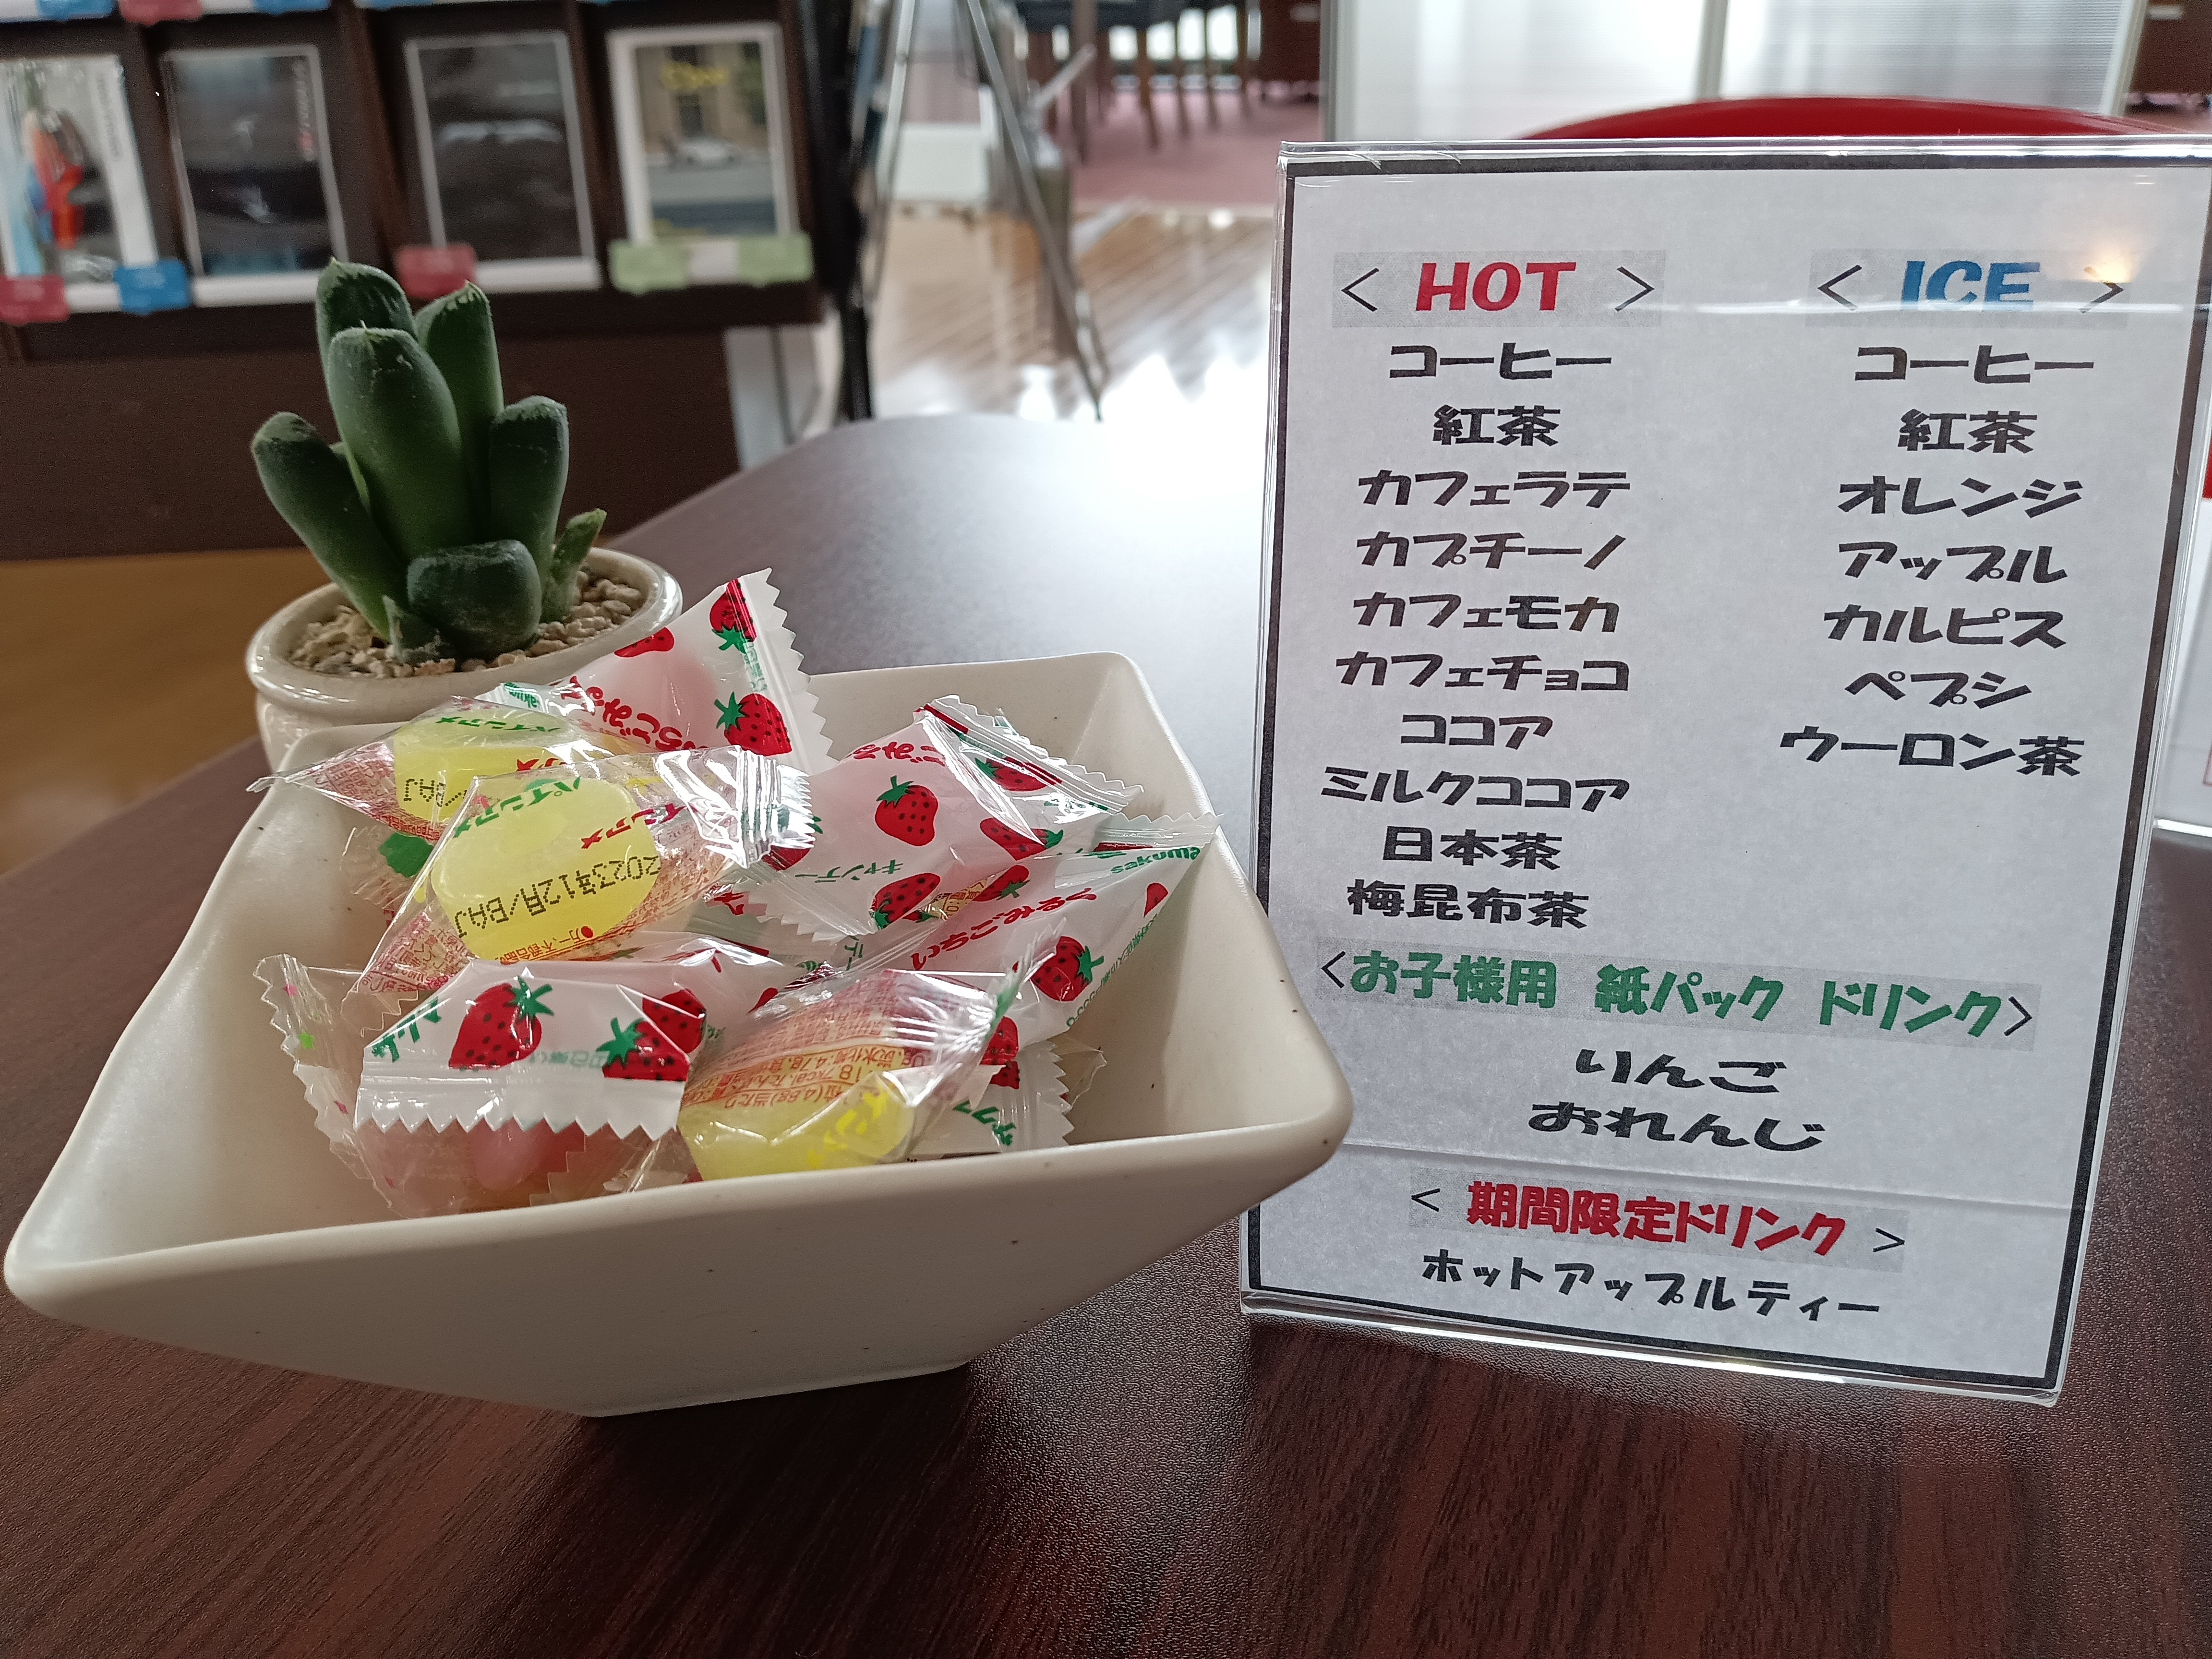 < HOT >
コーヒー
紅茶
カフェラテ
カプチーノ
カフェモカ
カフェチョコ
ココア
ミルクココア
日本茶
梅昆布茶
< ICE >
コーヒー
紅茶
オレンジ
アップル
カルピス
ペプシ
ウーロン茶
<お子様用 紙パック ドリンク>
りんご
おれんじ
< 期間限定ドリンク >
ホットアップルティー
パインアメ
パインアメ
2023年12月/BAJ
/BAJ
キャンデー
sakuma